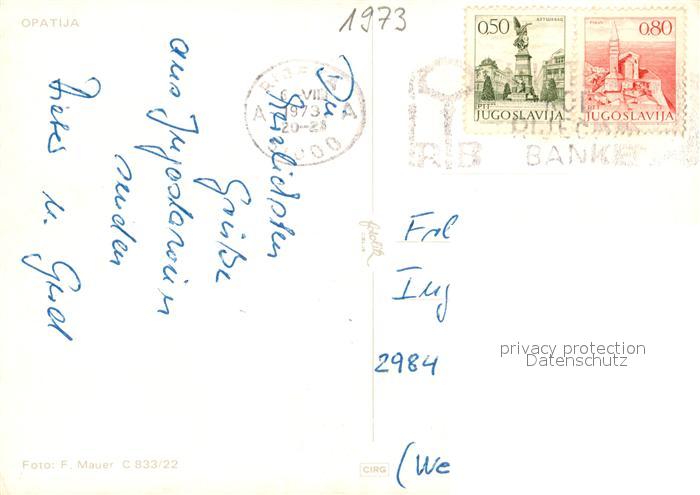 OPATIJA
1973
0,50
0,80
PTT
JUGOSLAVIJA
PTT
JUGOSLAVIJA
VIII
1973
20-24
A
A
BANKE
Die
herzlichsten
Grüße
aus Jugoslavien
senden
u. Gerd
Frl
Ing
2984
(We
privacy protection
Datenschutz
Foto: F. Mauer C 833/22
CIRG